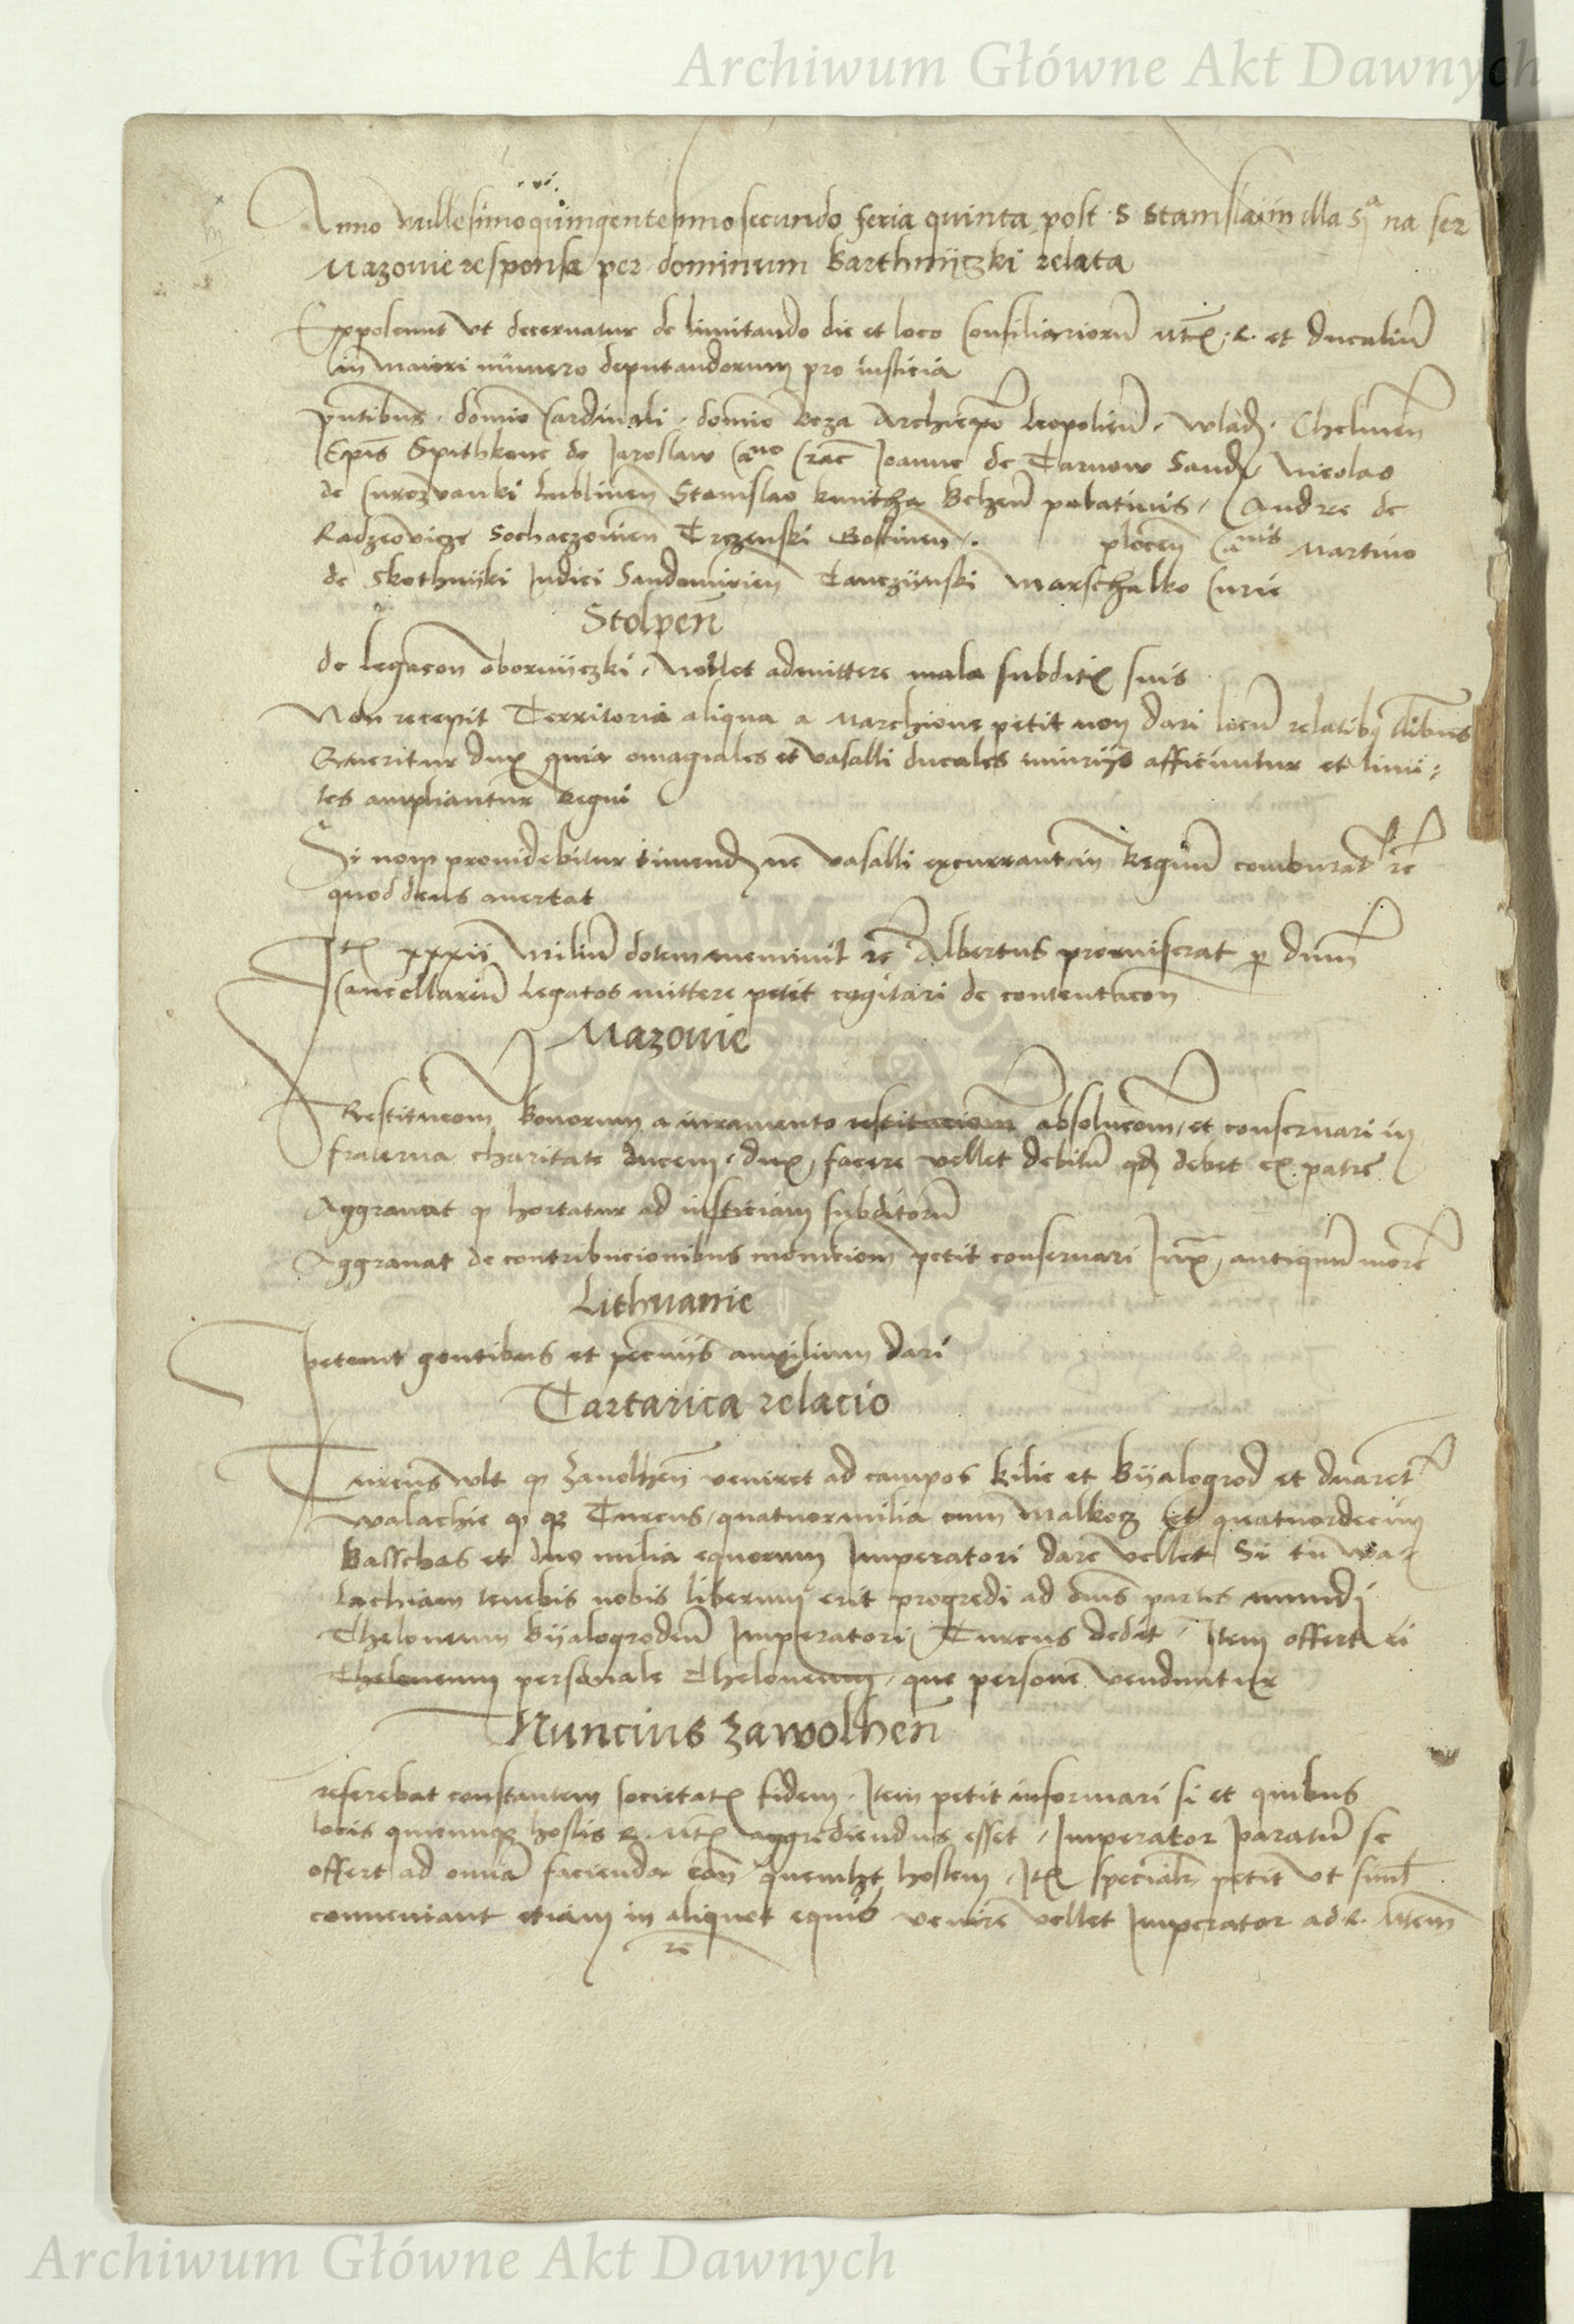 Archiwum Główne Akt Dawnych
Anno millesimoquingentesimosecundo feria quinta post S Stanislai in illa na
Mazovie responsa per dominum Barthnyczki relata
Expolerunt ut decernatur de limitando die et loco Consiliariorū et ducaliū
in maiori numero deputandorum pro iusticia
pntibus domīo Cardinali domīo Roza Archiepō Leopolieñ Chelmeñ
Epīs Spithkone de Jaroslaw Crac Joanne de Tarnow Sand Nicolao
de Curozvanki Lublineñ Stanislao kmitha Belzeñ palatinis Andree de
Radzeovicze Sochaczovieñ Trzenski Gostineñ ploceñ Martino
de Skothnyki Judici Sandomirieñ Tanczynski Marschalko Curie
Stolpeñ
de legacoñ obornyczki Nollet admittere mala subditis suis
Non recepit Territoria aliqua a Marchione petit non dari locū
Queritur dux quia omagiales et vasalli ducales iniuriis afficiuntur et limi=
tes ampliantur Regni
Si non providebitur timend ne vasalli excurrant in Regnū comburāt rc
quod deus avertat
xxxii Miliū dotem meminit rc Albertus promiserat p dnm
Cancellariū Legatos mittere petit cogitari de contentacoñ
Mazovie
Restitucoem Bonorum a iuramento restitucionem absolucoem et conservari in
fraterna charitate ducem dux facere vellet debitū qd debet ex patre
Aggravat q hortatur ad iusticiam subditorū
Aggravat de contribucionibus petit conservari antiquū morē
Lithuanie
petunt gentibus et pecuniis auxilium dari
Tartarica relacio
Turcus vult q Zavolheñ veniret ad campos Kilie et Byalogrod et
walachie Turcus quatuor milia cum Malkocz et quatuordecim
Basschas et duo milia equorum Imperatori dare vellet Si tu wa=
lachiam tenebis nobis liberum erit progredi ad oms partes mundi
Theloneum byalogrodeñ Imperatori Turcus dedit Item offert ei
Theloneum personale Theloneum que persone venduntur
Nuncius zawolheñ
referebat constantem societatis fidem Item petit informari si et quibus
locis quicunque hostis R. aggrediendus esset Imperator paratū se
offert ad omnia facienda hostem petit ut simł
conveniant etiam in aliquot equis venire vellet Imperator ad R. Mtem
rc
Archiwum Główne Akt Dawnych